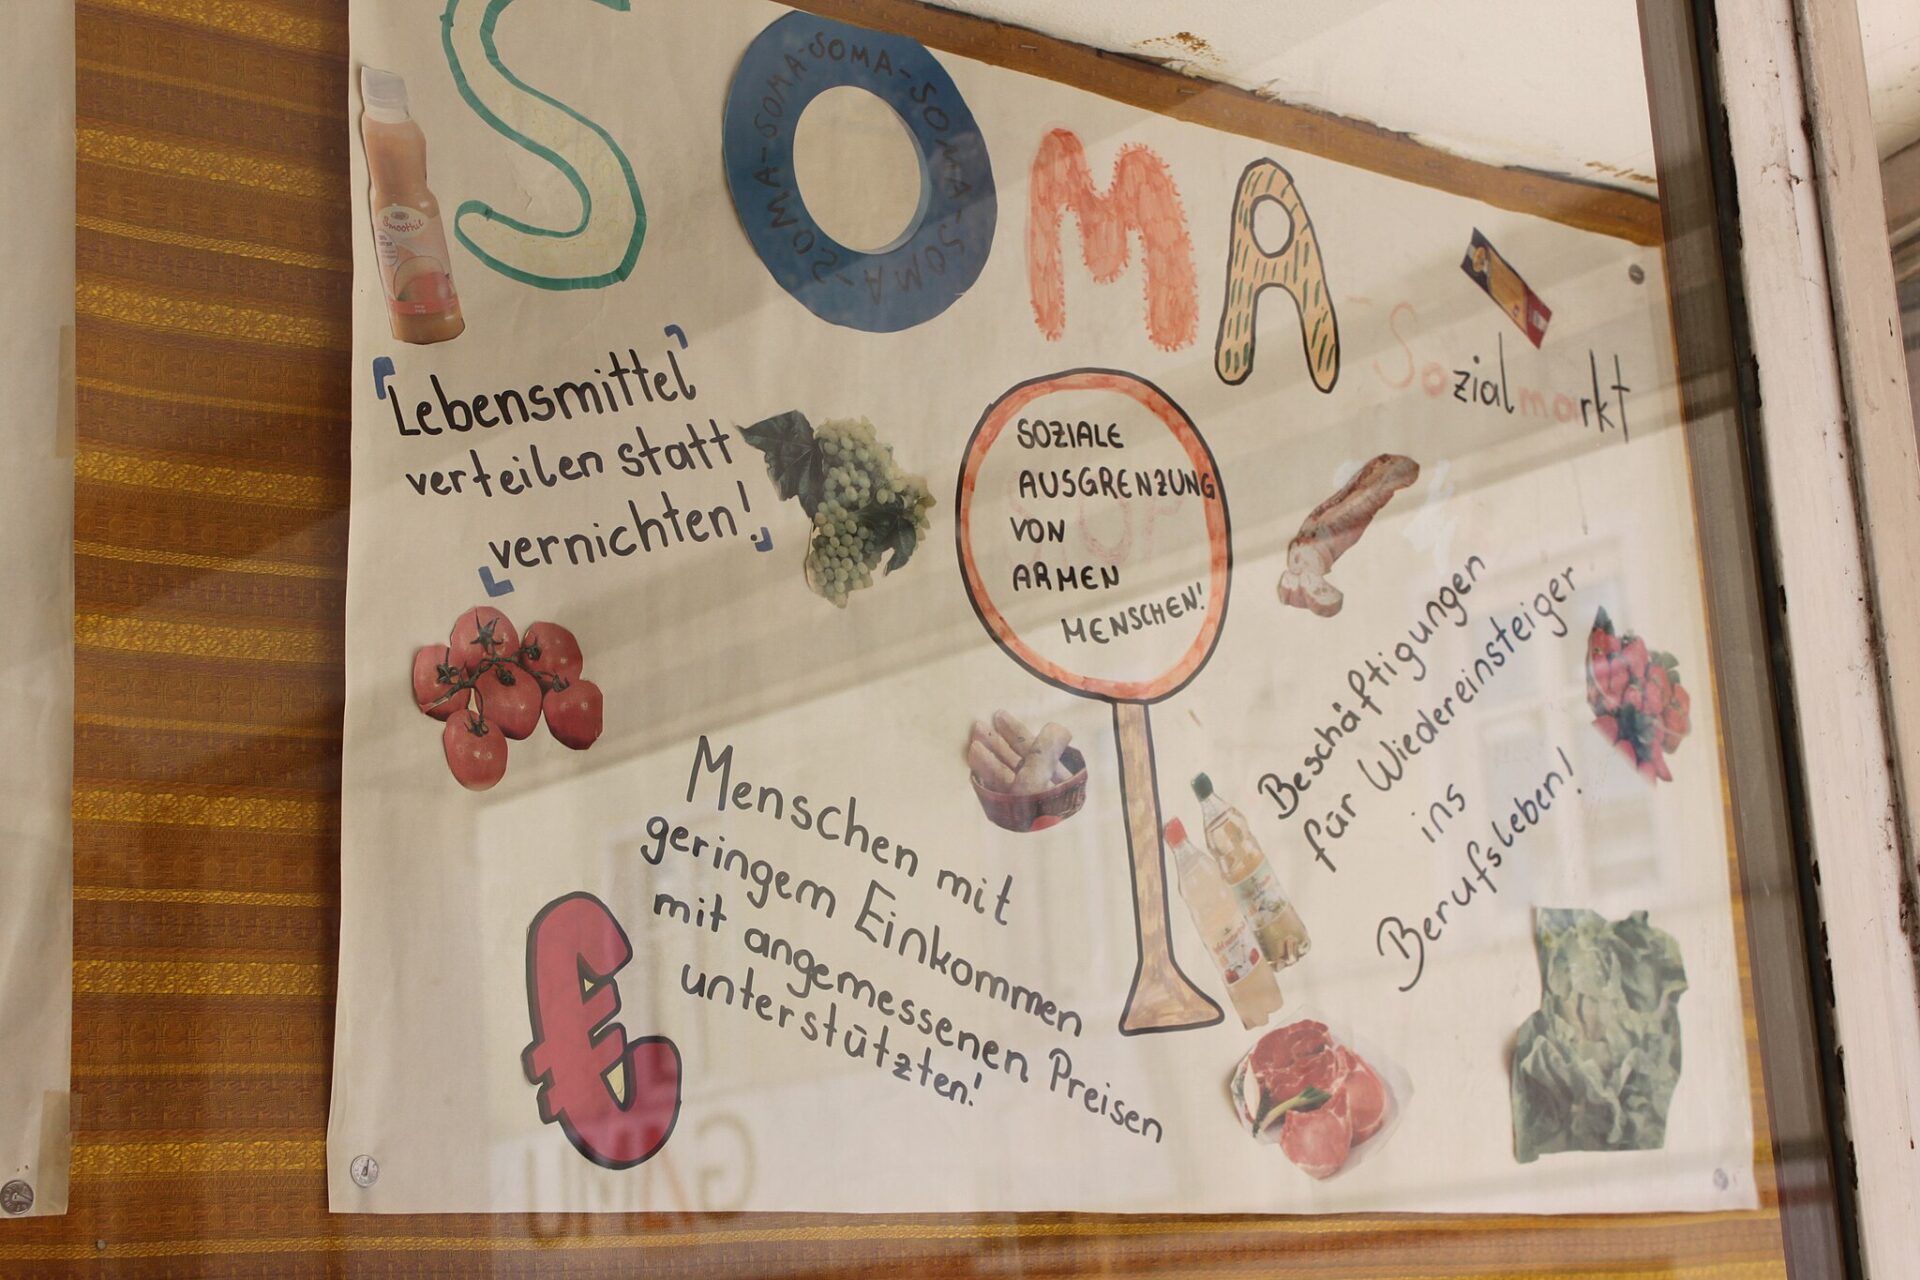 SOMA
SOMA-SOMA-SOMA-SOMA-SOMA-SOMA-SOMA-
-Sozialmarkt
Smoothie
Lebensmittel
verteilen statt
vernichten!
STOP
SOZIALE
AUSGRENZUNG
VON
ARMEN
MENSCHEN!
Beschäftigungen
für Wiedereinsteiger
ins
Berufsleben!
Menschen mit
geringem Einkommen
mit angemessenen Preisen
unterstützten!
€